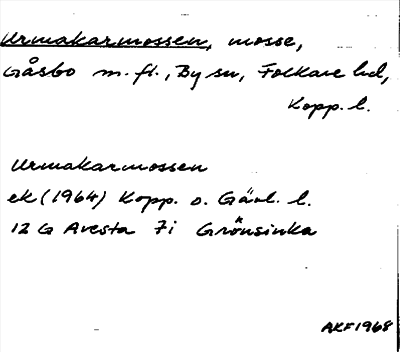 Urmakarmossen, mosse,
Gåsbo m.fl., By sn, Folkare hd,
Kopp. l.
Urmakarmossen
ek (1964) Kopp. o. Gävl. l.
12 G Avesta 7i Grönsinka
AKF 1968